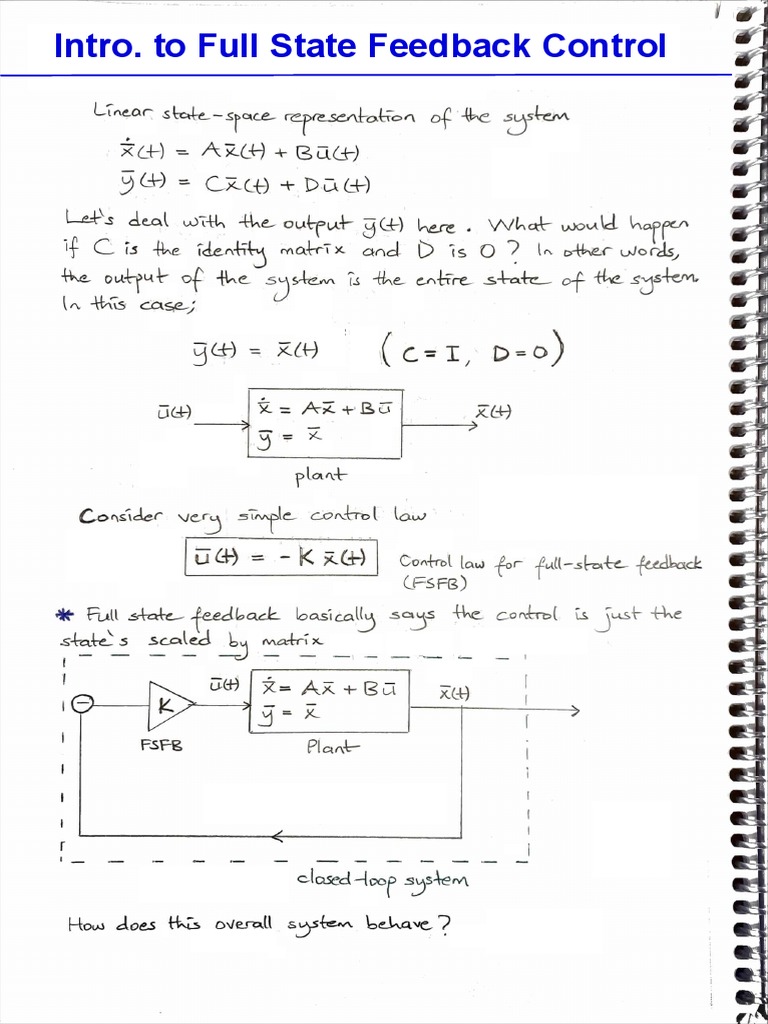 Intro. to Full State Feedback Control
Linear state-space representation of the system
ẋ̄(t) = Ax̄(t) + Bū(t)
ȳ(t) = Cx̄(t) + Dū(t)
Let's deal with the output ȳ(t) here. What would happen
if C is the identity matrix and D is 0? In other words,
the output of the system is the entire state of the system.
In this case;
ȳ(t) = x̄(t) (C=I, D=0)
ū(t)
ẋ̄ = Ax̄ + Bū
ȳ = x̄
x̄(t)
plant
Consider very simple control law
ū(t) = -K x̄(t)
Control law for full-state feedback
(FSFB)
* Full state feedback basically says the control is just the
state's scaled by matrix
K
FSFB
ū(t)
ẋ̄ = Ax̄ + Bū
ȳ = x̄
Plant
x̄(t)
closed-loop system
How does this overall system behave?